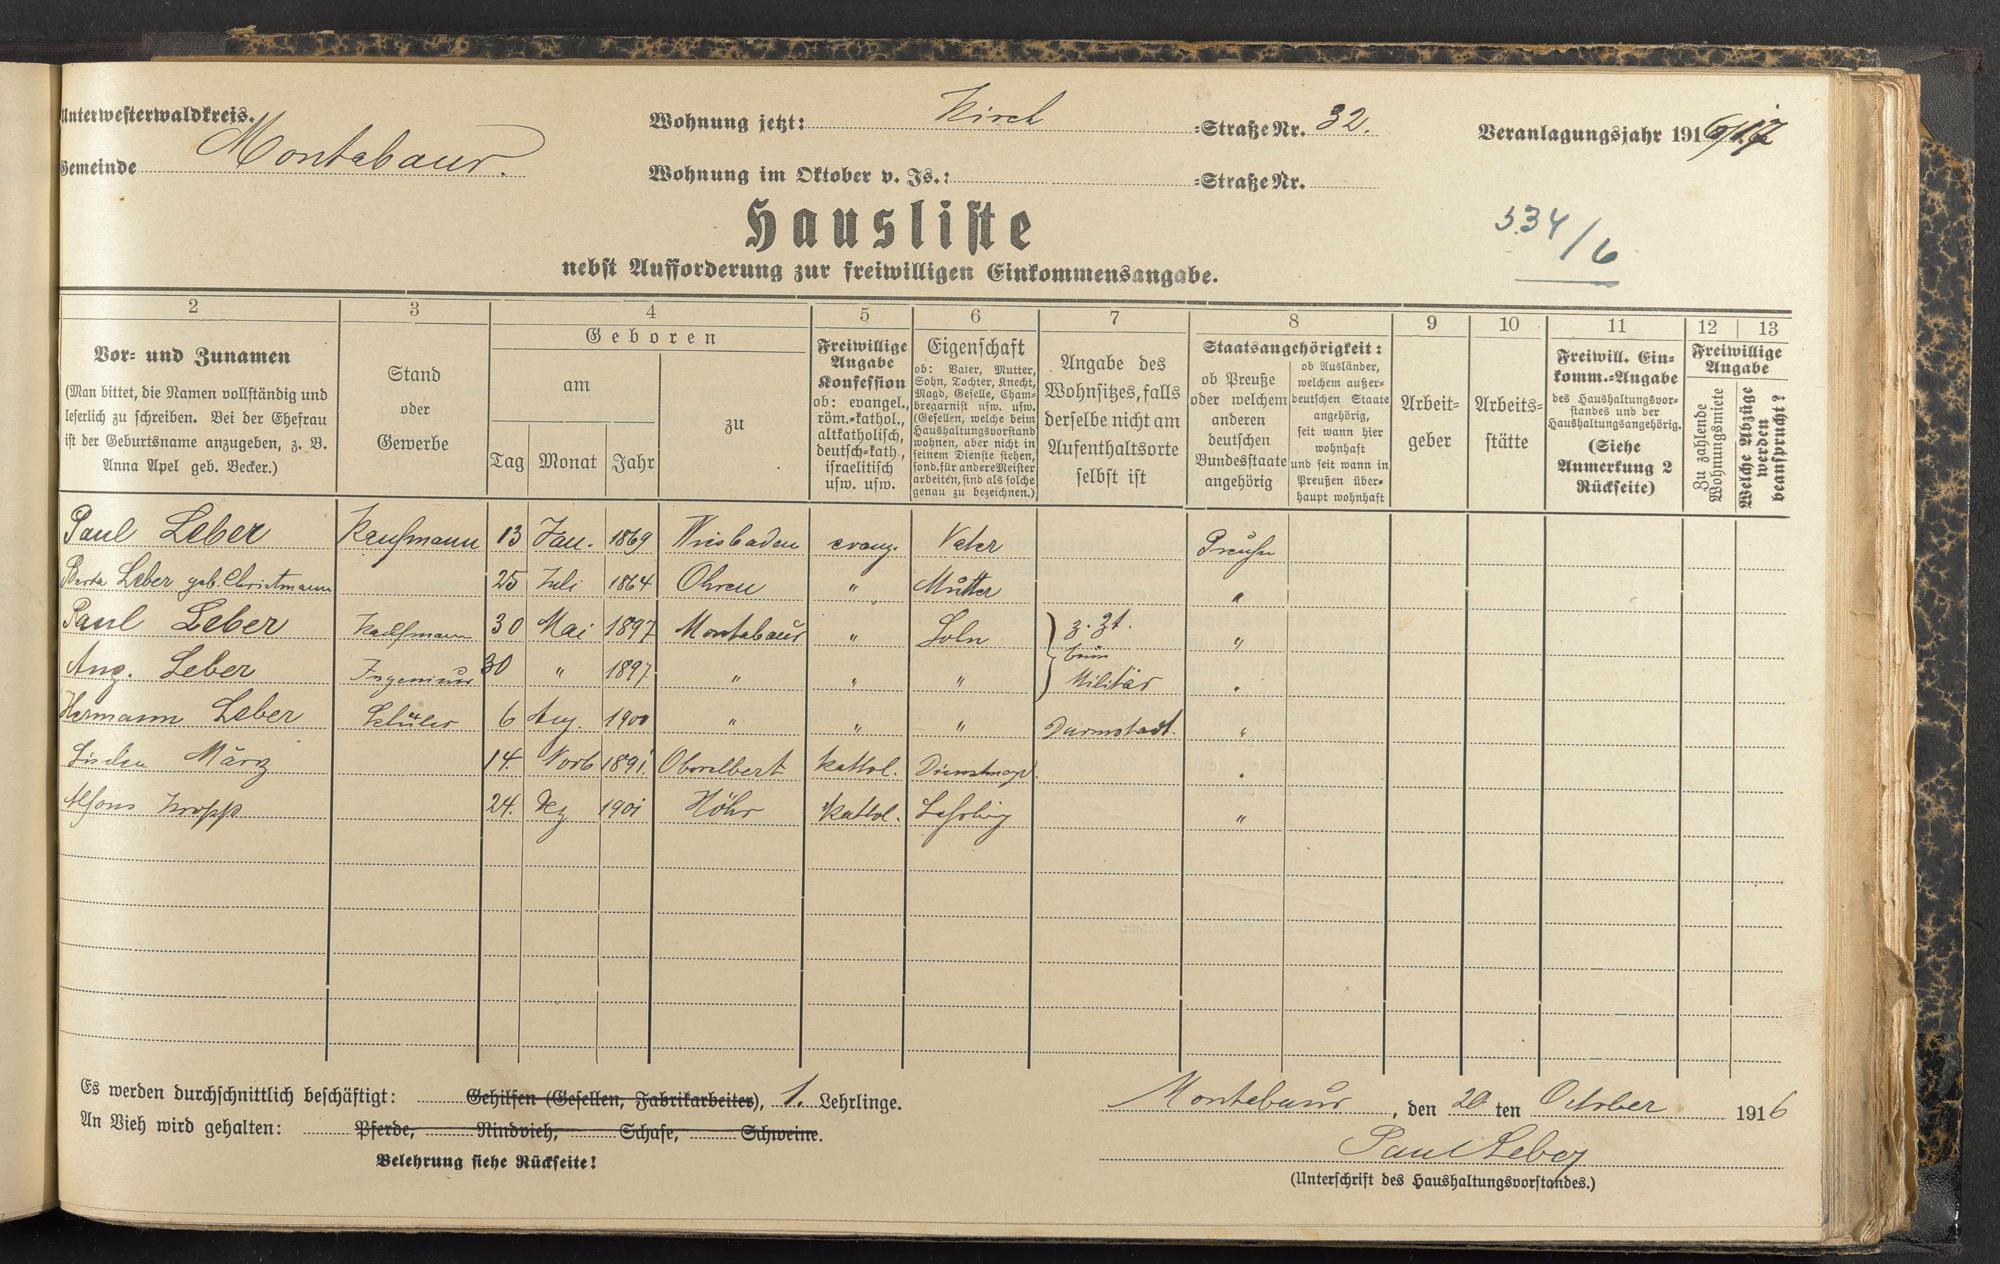 Unterwesterwaldkreis.
Gemeinde Montabaur.
Wohnung jetzt: Kirch -Straße Nr. 32.
Wohnung im Oktober v. Js.: -Straße Nr.
Veranlagungsjahr 1916/17
534/6
Hausliste
nebst Aufforderung zur freiwilligen Einkommensangabe.
2 3 4 5 6 7 8 9 10 11 12 13
Vor- und Zunamen
(Man bittet, die Namen vollständig und
leserlich zu schreiben. Bei der Ehefrau
ist der Geburtsname anzugeben, z. B.
Anna Apel geb. Becker.)
Stand
oder
Gewerbe
Geboren
am
Tag Monat Jahr
zu
Freiwillige
Angabe
Konfession
ob: evangel.,
röm.-kathol.,
altkatholisch,
deutsch-kath.,
israelitisch
usw. usw.
Eigenschaft
ob: Vater, Mutter,
Sohn, Tochter, Knecht,
Magd, Geselle, Cham-
bregarnist usw. usw.
(Gesellen, welche beim
Haushaltungsvorstand
wohnen, aber nicht in
seinem Dienste stehen,
sond. für andere Meister
arbeiten, sind als solche
genau zu bezeichnen.)
Angabe des
Wohnsitzes, falls
derselbe nicht am
Aufenthaltsorte
selbst ist
Staatsangehörigkeit:
ob Preuße
oder welchem
anderen
deutschen
Bundesstaate
angehörig
ob Ausländer,
welchem außer-
deutschen Staate
angehörig,
seit wann hier
wohnhaft
und seit wann in
Preußen über-
haupt wohnhaft
Arbeit-
geber
Arbeits-
stätte
Freiwill. Ein-
komm.-Angabe
des Haushaltungsvor-
standes und der
Haushaltungsangehörig.
(Siehe
Anmerkung 2
Rückseite)
Freiwillige
Angabe
Zu zahlende
Wohnungsmiete
Welche Abzüge
werden
beansprucht?
Paul Leber Kaufmann 13 Jan. 1869 Wiesbaden evang. Vater Preuße
Berta Leber geb. Christmann 25 Juli 1864 Ohren " Mutter "
Paul Leber Kaufmann 30 Mai 1897 Montabaur " Sohn z. Zt. "
beim
Aug. Leber Ingenieur 30 " 1897 " " " Militär "
Hermann Leber Schüler 6 Aug. 1900 " " " Darmstadt. "
März 14. Novb 1891. Oberelbert kathol. Dienstmagd. "
Alfons 24. Dez 1901 Höhr kathol. Lehrling "
Es werden durchschnittlich beschäftigt: Gehilfen (Gesellen, Fabrikarbeiter), 1. Lehrlinge.
An Vieh wird gehalten: Pferde, Rindvieh, Schafe, Schweine.
Belehrung siehe Rückseite!
Montabaur, den 20 ten October 1916
Paul Leber
(Unterschrift des Haushaltungsvorstandes.)